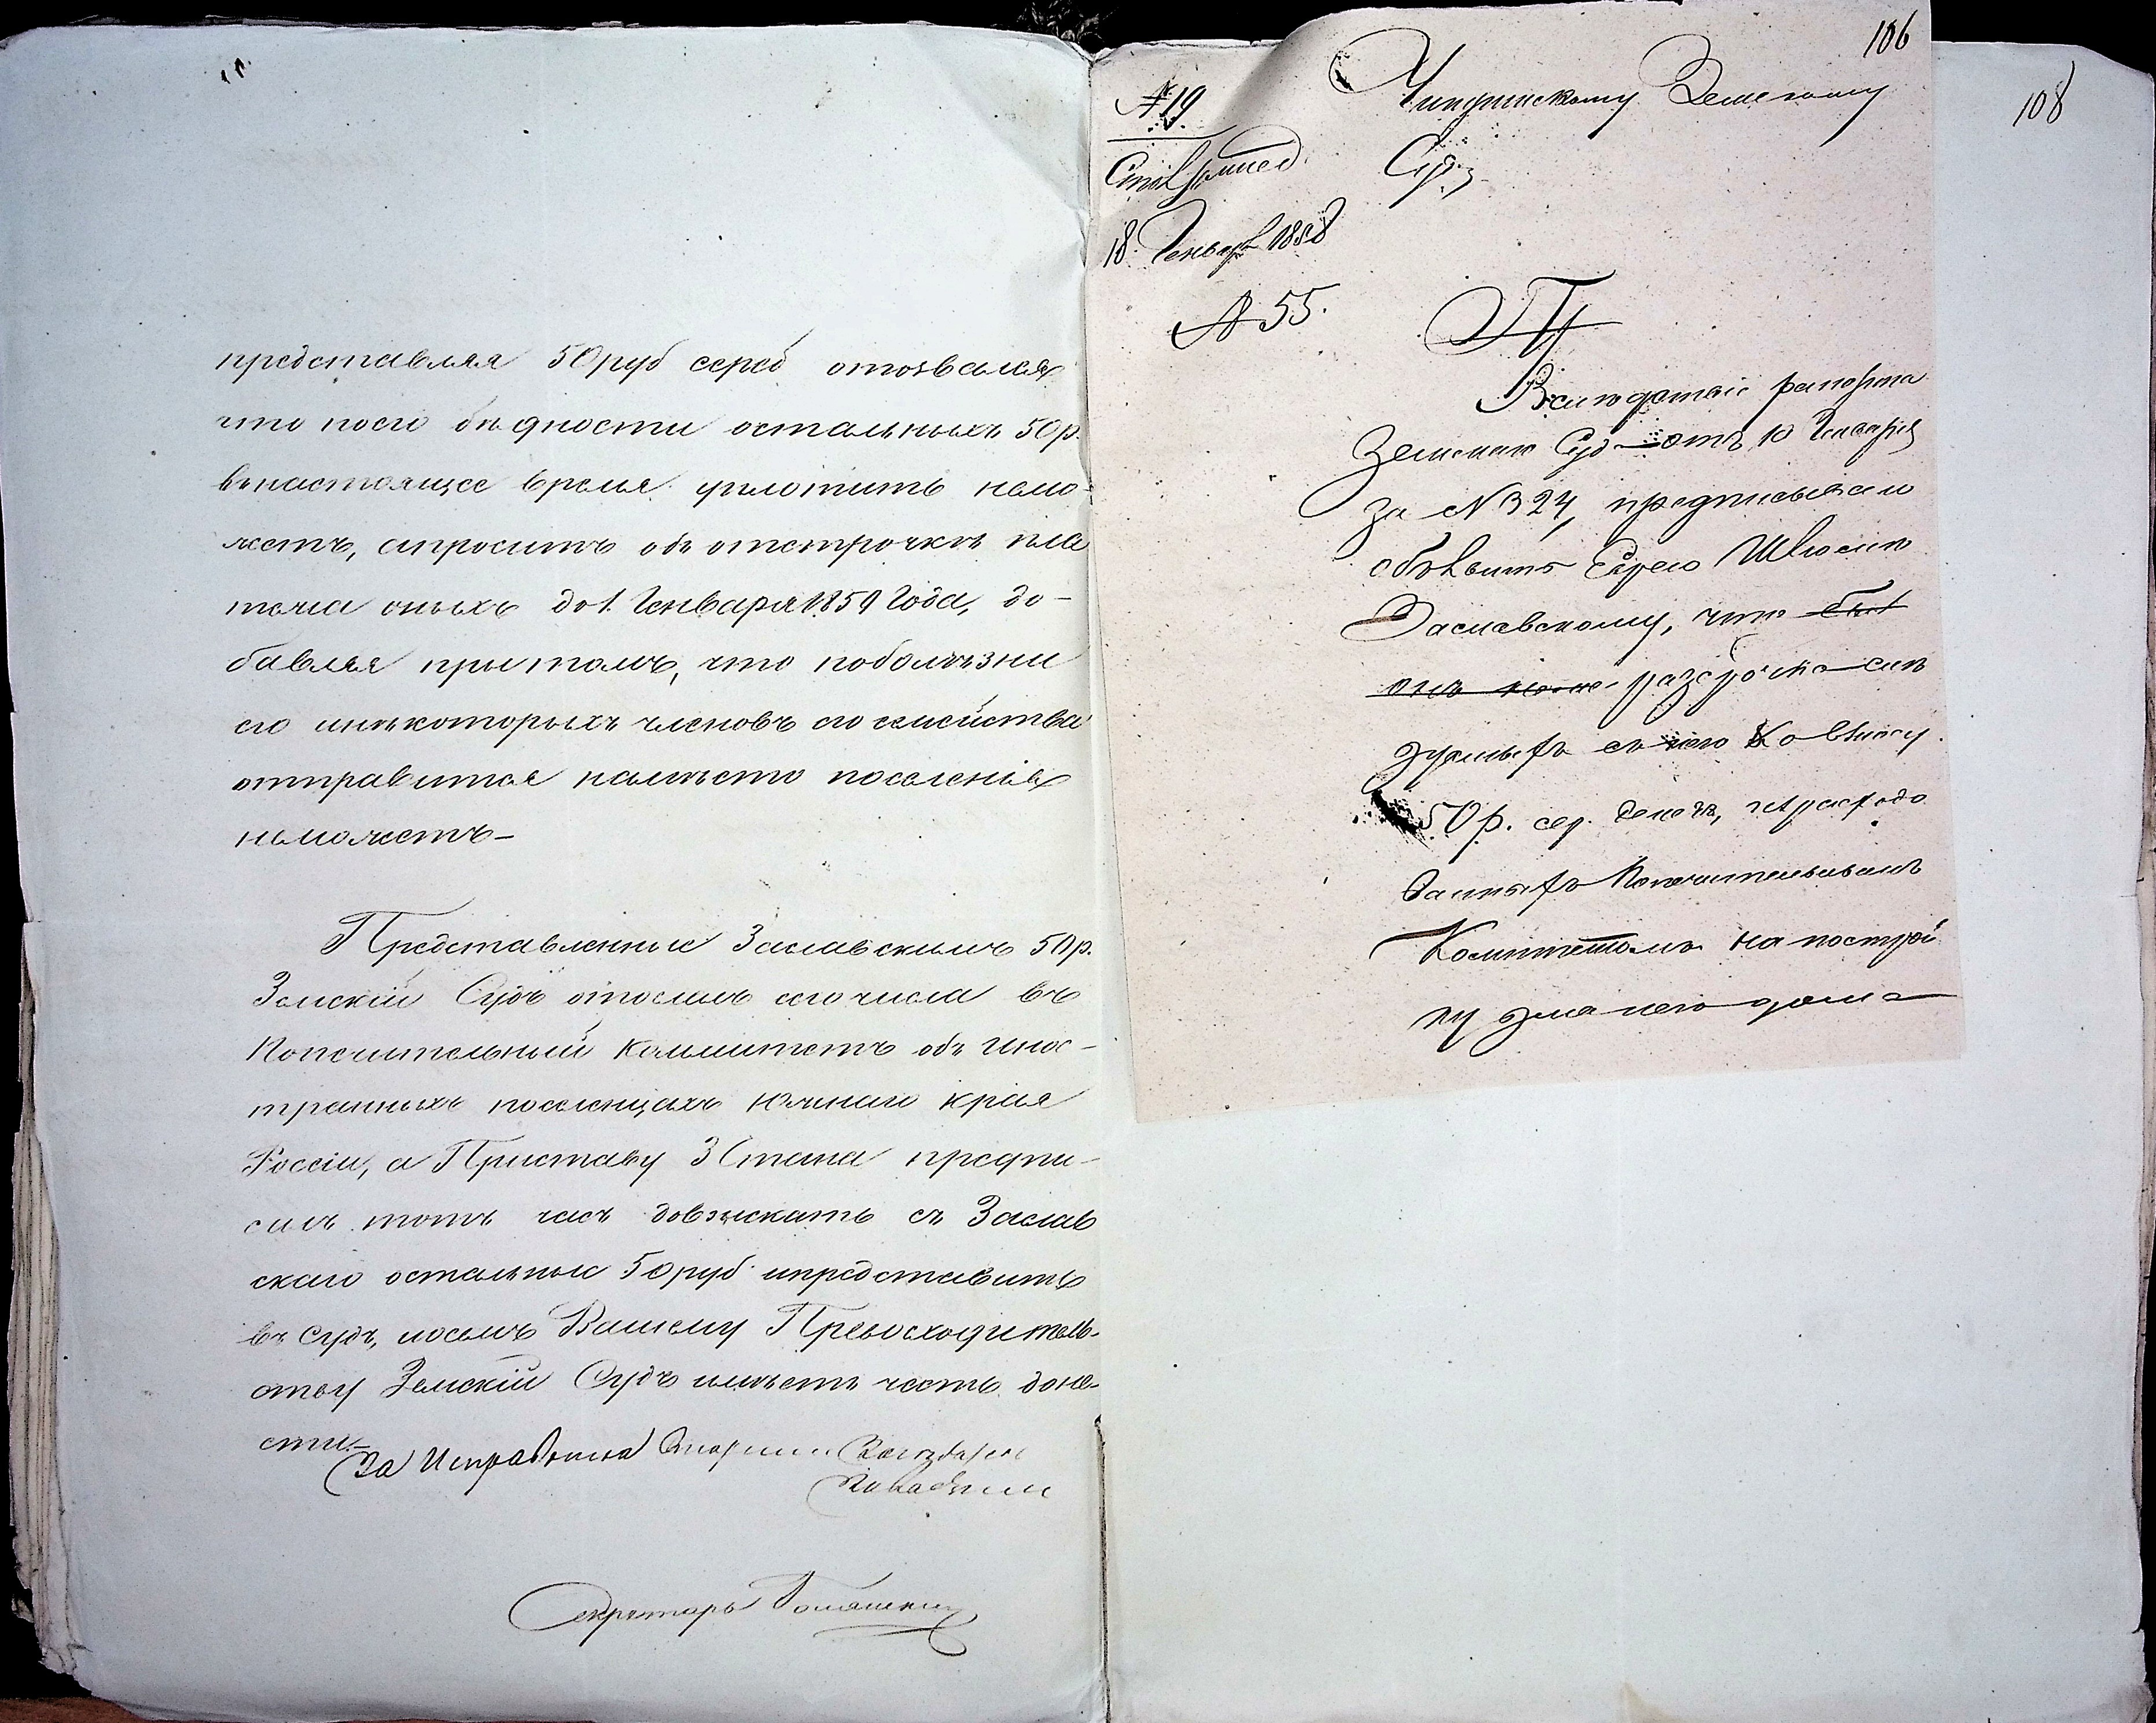 представляя 50 руб сереб отозвался
что посго бѣдности остальныхъ 50 р.
внастоящее время уплотить немо-
жетъ, ипроситъ объ отстрочкѣ пла
тежа оныхъ до 1. Генваря 1859 Года, до-
бавляя притомъ, что поболѣзни
его инѣкоторыхъ членовъ его семейства
отправится намѣсто поселенія
неможетъ -
Представленные Заславскимъ 50 р.
Земскій Судъ отослалъ сего числа въ
Попечительный Коммитетъ объ Инос-
транныхъ поселенцахъ Южнаго края
Россіи, а Приставу 3 Стана предпи-
салъ тотъ часъ довзыскать съ Заслав
скаго остальные 50 руб ипредставить
въ Судъ, очемъ Вашему Превосходитель-
ству Земскій Судъ имѣетъ честь доне-
сти. -
За Исправника Старшій
Секретарь
106
108
№ 19
Земскому
Суду
18. Генваря 1858
№ 55.
Пр
Вслѣдствіе рапорта
Земскаго Суда отъ 10 Генваря
за № 324, предписываю
объявить Еврею
Заславскому, что
разсрочка
50 р. сер. денегъ,
Попечительнымъ
Комитетомъ на построй
ку для него дома